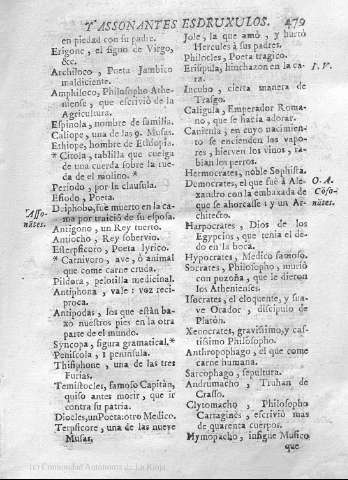 Y ASSONANTES ESDRUXULOS. 479
en piedad con su padre.
Erigone, el signo de Virgo,
&c.
Archiloco, Poeta Jambico
maldiciente.
Amphiloco, Philosopho Athe-
niense, que escrivió de la
Agricultura.
Espinola, nombre de familia.
Caliope, una de las 9. Musas.
Ethiope, hombre de Ethiopia.
* Citola, tablilla que cuelga
de una cuerda sobre la rue-
da de el molino. *
Periodo, por la clausula.
Esiodo, Poeta.
Deiphobo, fue muerto en la ca-
ma por traició de su esposa.
Antigono, un Rey tuerto.
Antiocho, Rey sobervio.
Estersicoro, Poeta lyrico.
* Carnivoro, ave, ò animal
que come carne cruda.
Pildora, pelotilla medicinal.
Antiphona, vale: voz reci-
proca.
Antipodas, los que están ba-
xo nuestros pies en la otra
parte de el mundo.
Syncopa, figura gramatical.*
Peniscola, ò peninsula.
Thisiphone, una de las tres
Furias.
Temistocles, famoso Capitàn,
quiso antes morir, que ir
contra su patria.
Diocles, un Poeta: otro Medico.
Terpsicore, una de las nueve
Musas.
*Asso-
nãtes.
Jole, la que amó, y hurtó
Hercules à sus padres.
Philocles, Poeta tragico.
Erisipula, hinchazon en la ca-
ra.
I. V.
Incubo, cierta manera de
Trasgo.
Caligula, Emperador Roma-
no, que se hacia adorar.
Canicula, en cuyo nacimien-
to se encienden los vapo-
res, hierven los vinos, ra-
bian los perros.
Hermocrates, noble Sophista.
Democrates, el que fue à Ale-
xandro con la embaxada de
que se ahorcasse: y un Ar-
chitecto.
O. A.
Cõso-
nãtes.
Harpocrates, Dios de los
Egypcios, que tenia el de-
do en la boca.
Hypocrates, Medico famoso.
Socrates, Philosopho, murió
con pozoña, que le dieron
los Athenienses.
Isocrates, el eloquente, y sua-
ve Orador, discipulo de
Platón.
Xenocrates, gravissimo, y cas-
tissimo Philosopho.
Anthropophago, el que come
carne humana.
Sarcophago, sepultura.
Andrumacho, Truhan de
Crasso.
Clytomacho, Philosopho
Cartaginès, escrivió mas
de quarenta cuerpos.
Hymopacho, insigne Musico
que
(c) Comunidad Autónoma de La Rioja